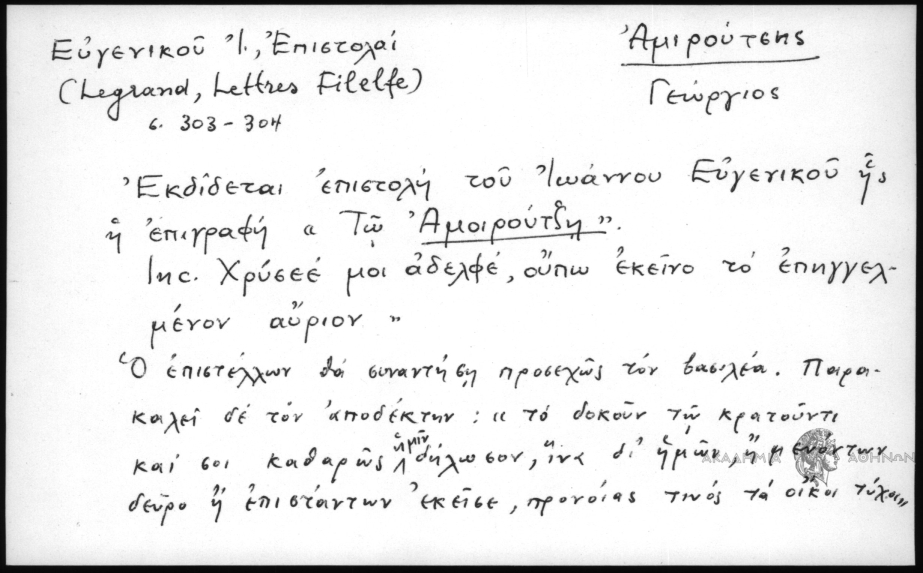 Εὐγενικοῦ Ἰ., Ἐπιστολαί
(Legrand, Lettres Filelfe)
σ. 303-304
Ἀμιρούτσης
Γεώργιος
Ἐκδίδεται ἐπιστολή τοῦ Ἰωάννου Εὐγενικοῦ ἧς
ἡ ἐπιγραφή « Τῷ Ἀμοιρούτζῃ ».
Inc. Χρύσεέ μοι ἀδελφέ, οὔπω ἐκεῖνο τό ἐπηγγελ-
μένον αὔριον »
Ὁ ἐπιστέλλων θά συναντήσῃ προσεχῶς τόν βασιλέα. Παρα-
καλεῖ δέ τόν ἀποδέκτην : « τό δοκοῦν τῷ κρατοῦντι
καί σοι καθαρῶς ἡμῖν δήλωσον, ἵνα δι' ἡμῶν, ἤ μενόντων
δεῦρο ἤ ἐπιστάντων ἐκεῖσε, προνοίας τινός τά οἴκοι τύχοι»
ΑΚΑΔΗΜΙΑ ΑΘΗΝΩΝ